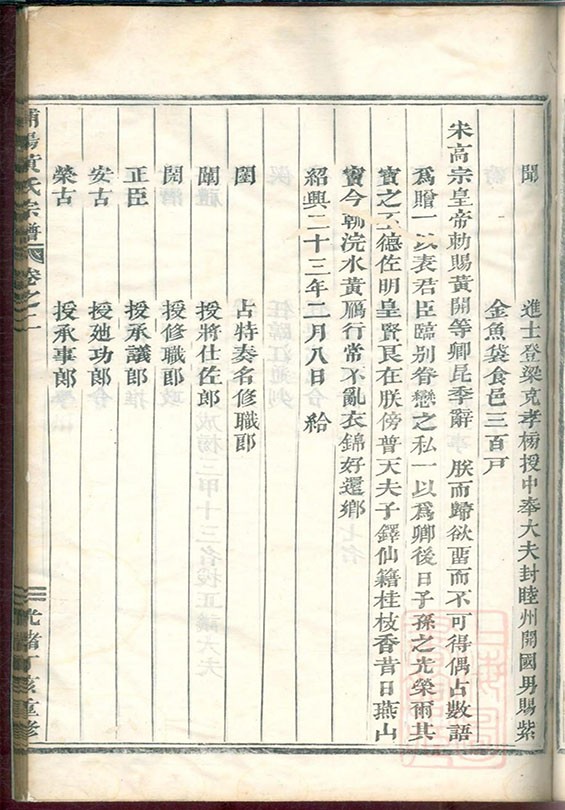 聞 進士登梁克孝榜授中奉大夫封睦州開國男賜紫
金魚袋食邑三百戸
宋高宗皇帝勅賜黃開等卿昆季辭 朕而歸欲畱而不可得偶占數語
爲贈一以表君臣臨別眷戀之私一以爲卿後日子孫之光榮爾其
寳之 王德佐明皇賢良在朕傍普天夫子鐸仙籍桂枝香昔日燕山
竇今朝浣水黃鴈行常不亂衣錦好還鄉
紹興二十三年二月八日 給
閨 占特奏名修職郎
關 授將仕佐郎
閱 授修職郎
正臣 授承議郎
安古 授廸功郎
榮古 授承事郎
浦陽黃氏宗譜 卷之二 光緒丁亥重修